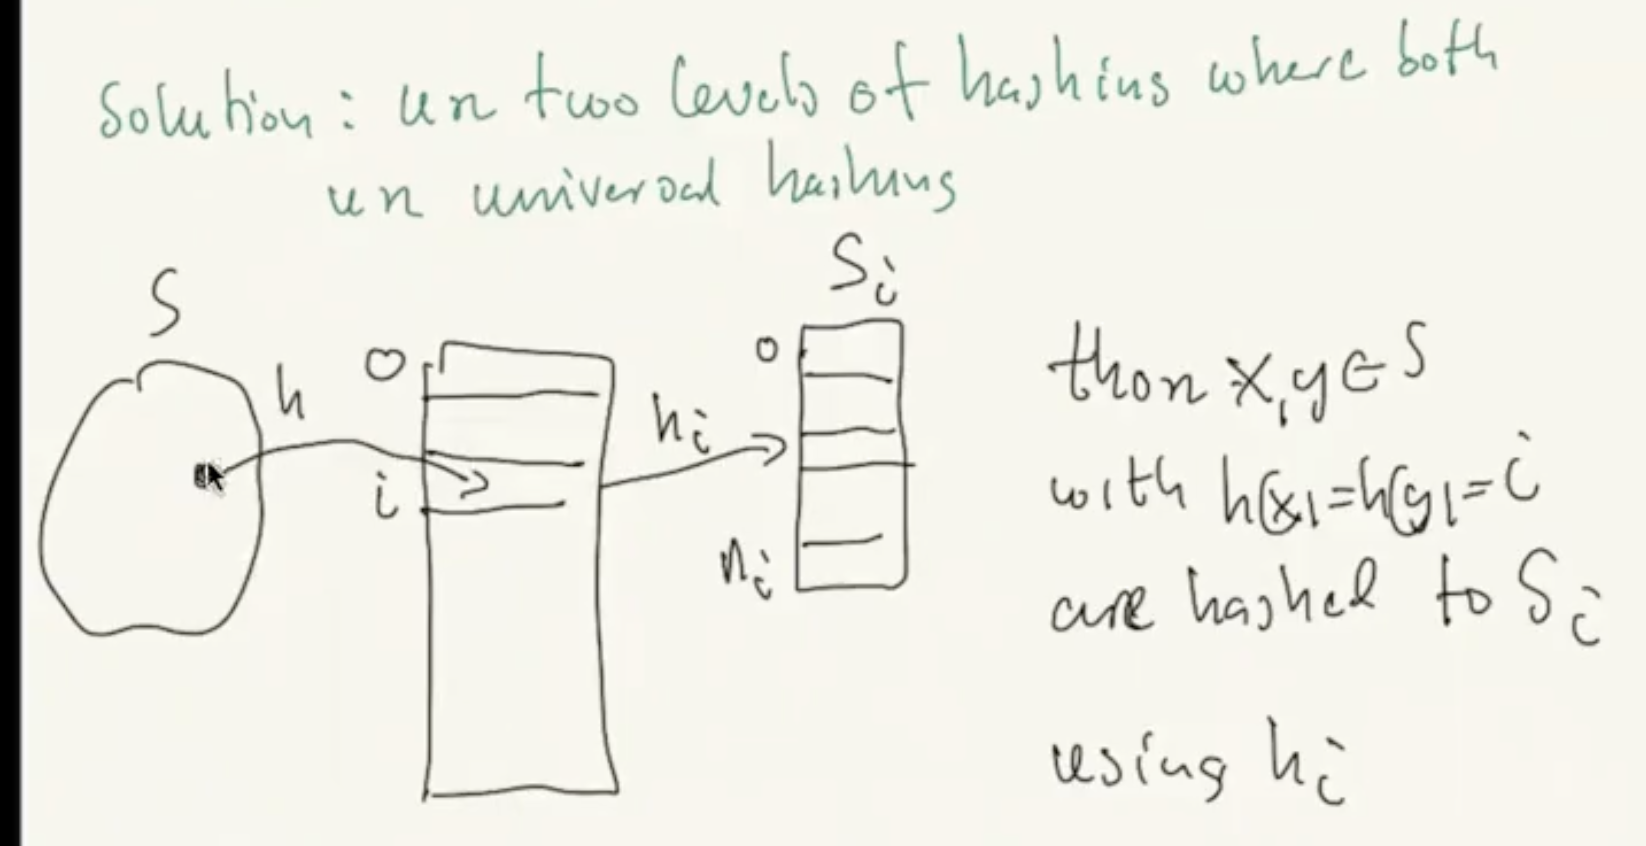 Solution: use two levels of hashing where both
use universal hashing
S
h
0
i
h_i
S_i
0
n_i
those x,y ∈ S
with h(x)=h(y)=i
are hashed to S_i
using h_i